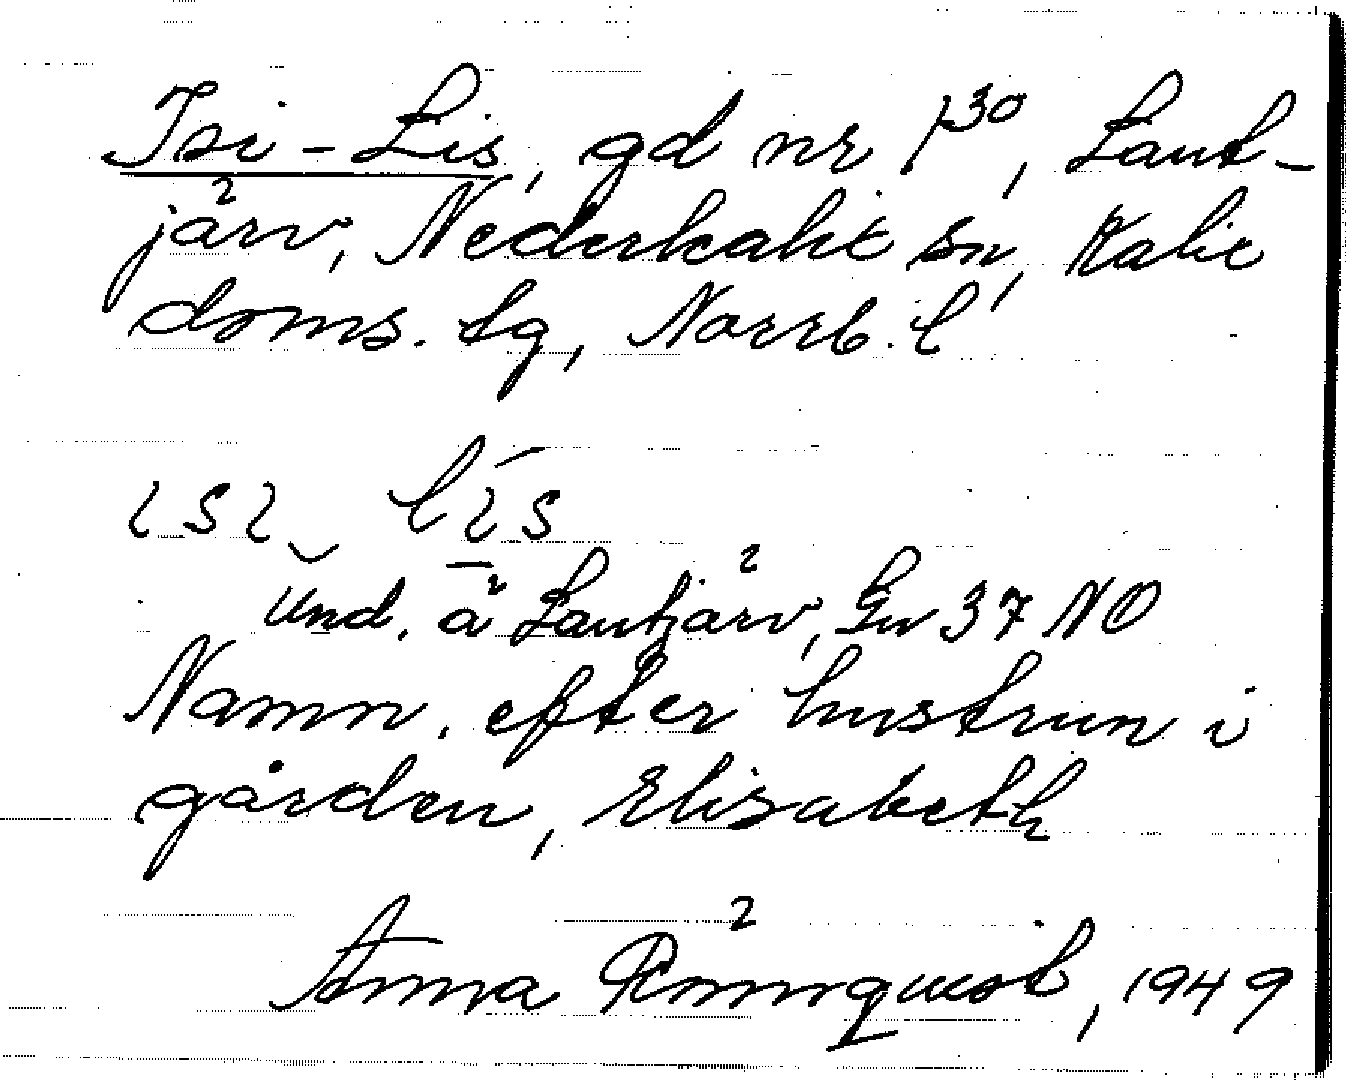 Isi-Lis, gd nr 1³⁰, Lant-
järv, Nederkalix sn, Kalix
doms. lg, Norrb. l
ısı lı̄s
Und. å Lantjärv, Gn 37 NO
Namn. efter hustrun i
gården, Elisabeth
Anna Rönnquist, 1949